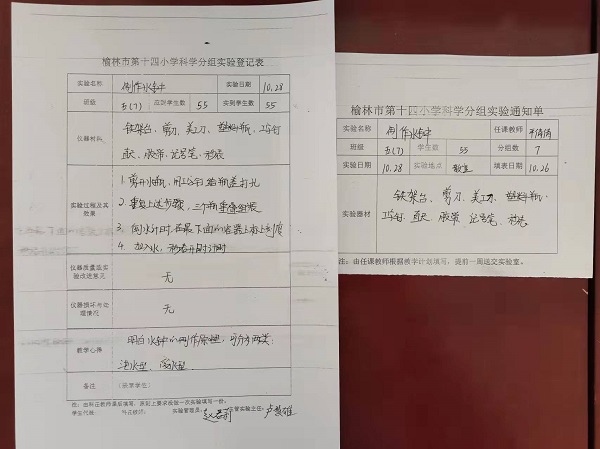 榆林市第十四小学科学分组实验登记表
实验名称 制作水钟 实验日期 10.28
班级 五(7) 应到学生数 55 实到学生数 55
仪器材料 铁架台、剪刀、美工刀、塑料瓶、工字钉
直尺、胶带、记号笔、秒表
实验过程及其效果
1. 剪开水瓶,用工字钉给瓶盖打孔
2. 重复上述步骤,三个瓶重叠组装
3. 用水计时,在最下面的容器上标上刻度
4. 加入水,秒表开始计时
仪器质量或实验改进意见 无
仪器损坏与处理情况 无
教学心得 明白水钟的制作原理,可分为两类:
泄水型、受水型
备注
学生代表: 科任教师: 实验管理员: 主管实验主任:
榆林市第十四小学科学分组实验通知单
实验名称 制作水钟 任课教师
班级 五(7) 学生数 55 分组数 7
实验日期 10.28 实验地点 教室 填表日期 10.26
实验器材 铁架台、剪刀、美工刀、塑料瓶、
工字钉、直尺、胶带、记号笔、秒表
注:由任课教师根据教学计划填写,提前一周送交实验室。